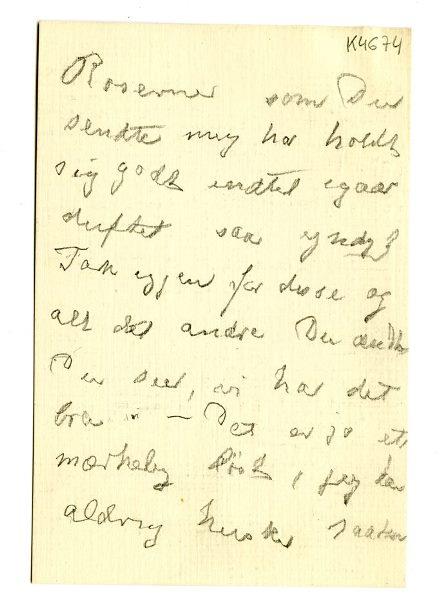 K4674
Roserne som Du
sendte mig har holdt
sig godt indtil igaar
duftet saa
Tak igjen for disse og
alt det andre Du sendte
Du seer, vi har det
bra — Det er jo et
mærkelig Høst, jeg kan
aldrig huske saadan